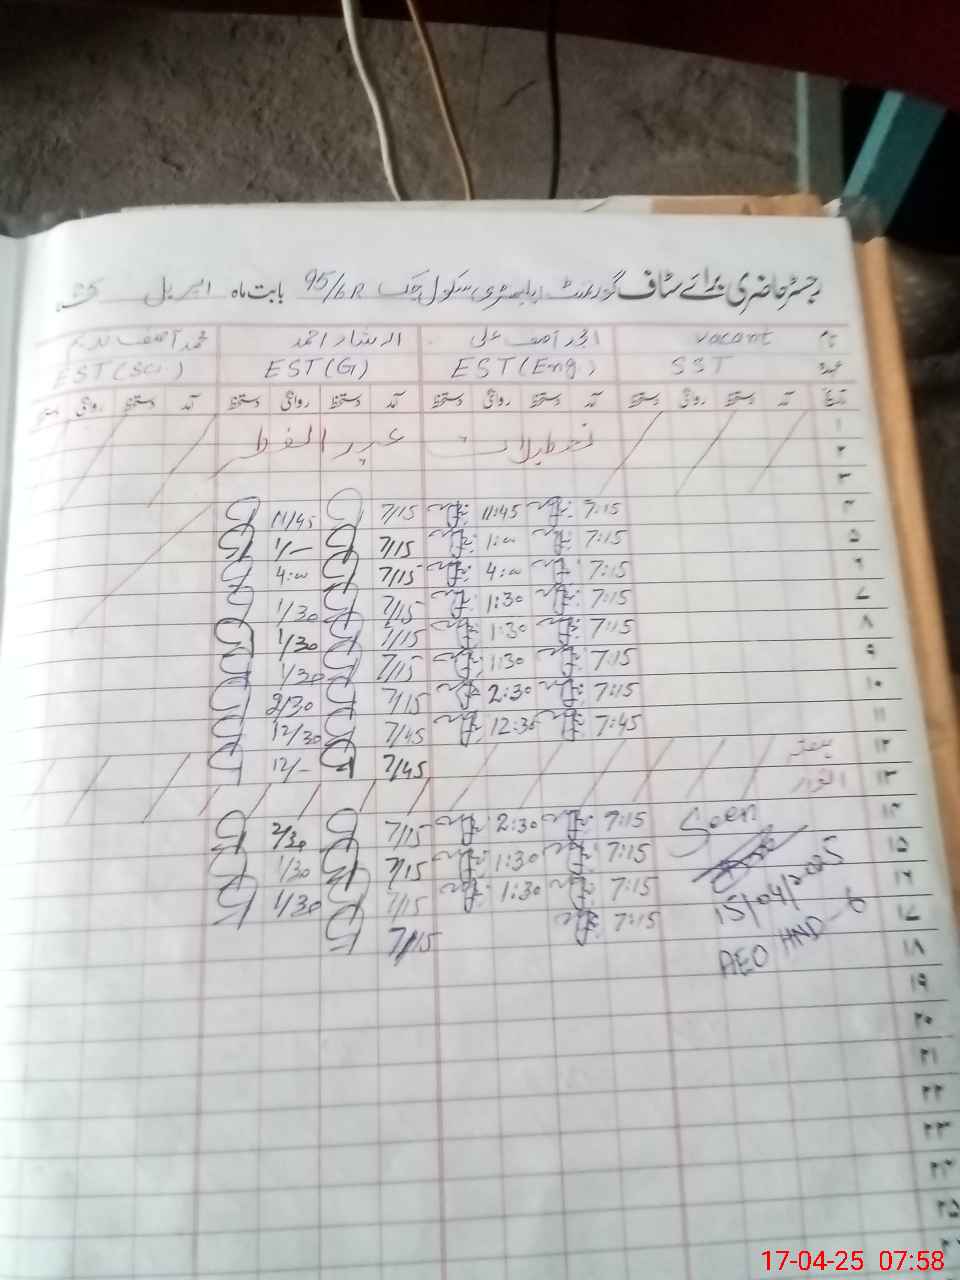 رجسٹر حاضری برائے سٹاف گورنمنٹ ایلیمنٹری سکول چک 95/6R بابت ماہ اپریل
نام vacant امجد آصف علی ارشاد احمد محمد آصف ندیم
عہدہ SST EST (Eng.) EST (G) EST (Sci.)
تاریخ آمد دستخط روانگی دستخط آمد دستخط روانگی دستخط آمد دستخط روانگی دستخط آمد دستخط روانگی دستخط
۱ تعطیلات عید الفطر
۲
۳
۴ 7:15 11:45 7/15 11/45
۵ 7:15 1:00 7/15 1/-
۶ 7:15 4:00 7/15 4:00
۷ 7:15 1:30 7/15 1/30
۸ 7:15 1:30 7/15 1/30
۹ 7:15 1:30 7/15 1/30
۱۰ 7:15 2:30 7/15 2/30
۱۱ 7:45 12:30 7/45 12/30
۱۲ ہفتہ 7/45 12/-
۱۳ اتوار
۱۴ Seen 7:15 2:30 7/15 2/30
۱۵ 7:15 1:30 7/15 1/30
۱۶ 15/04/2025 7:15 1:30 7/15 1/30
۱۷ AEO HND-6 7:15 7/15
۱۸
۱۹
۲۰
۲۱
۲۲
۲۳
۲۴
۲۵
17-04-25 07:58